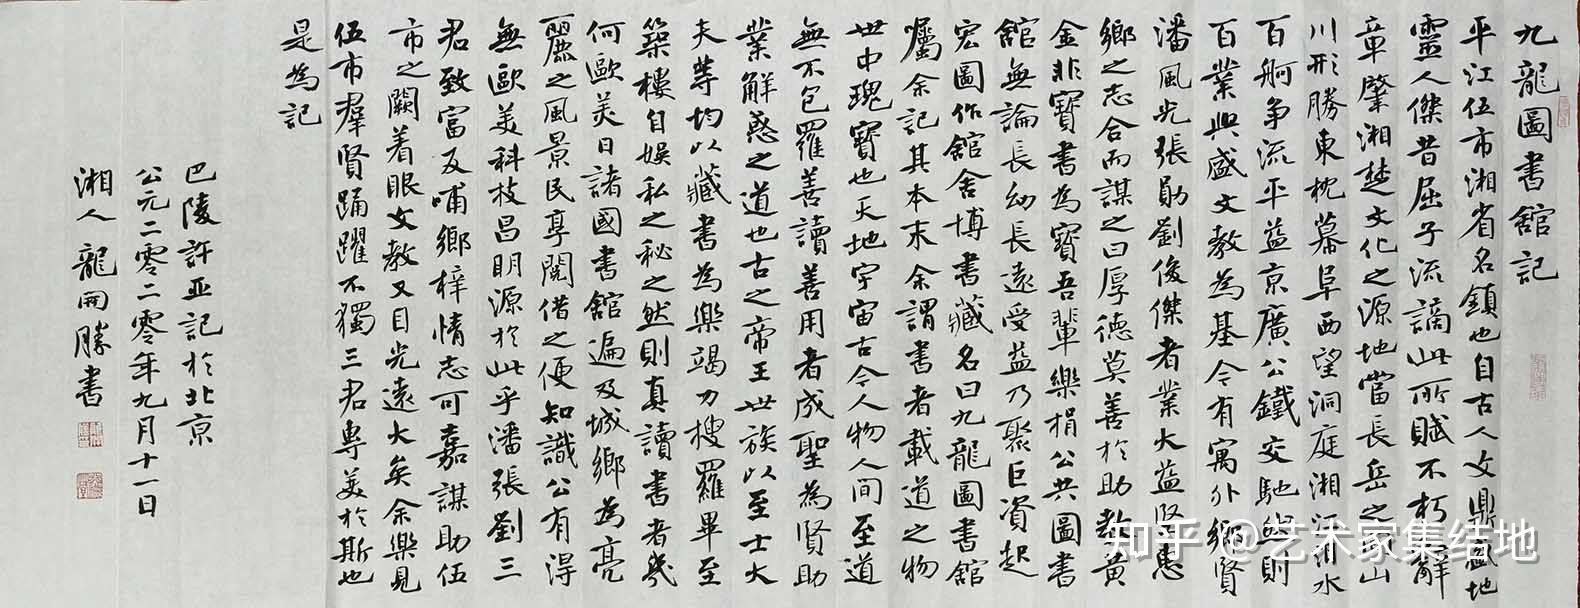 九龍圖書舘記
平江伍市湘省名鎮也自古人文鼎盛地
靈人傑昔屈子流謫此所賦不朽辭
章肇湘楚文化之源地當長岳之山
川形勝東枕幕阜西望洞庭湘江汨水
百舸争流平益京廣公鐵交馳與則
百業興盛文教為基今有寓外鄉賢
潘風光張勛劉俊傑者業大益堅惠
鄉之志合而謀之曰厚德莫善於助教黄
金非寶書為寶吾輩樂捐公共圖書
舘無論長幼長遠受益乃聚巨資起
宏圖作舘舍博書藏名曰九龍圖書舘
囑余記其本末余謂書者載道之物
世中瑰寶也天地宇宙古今人物人间至道
無不包羅善讀善用者成聖為賢助
業解惑之道也古之帝王世族以至士大
夫等均以藏書為樂竭力搜羅畢至
築樓自娱私之秘之然則真讀書者幾
何歐美日諸國書舘遍及城鄉為亮
麗之風景民享閲借之便知識公有得
無歐美科技昌明源於此乎潘張劉三
君致富反哺鄉梓情志可嘉謀助伍
市之闕着眼文教又目光遠大矣余樂見
伍市羣賢踊躍不獨三君專美於斯也
是為記
巴陵許亚記於北京
公元二零二零年九月十一日
湘人龍開勝書
知乎 @艺术家集结地